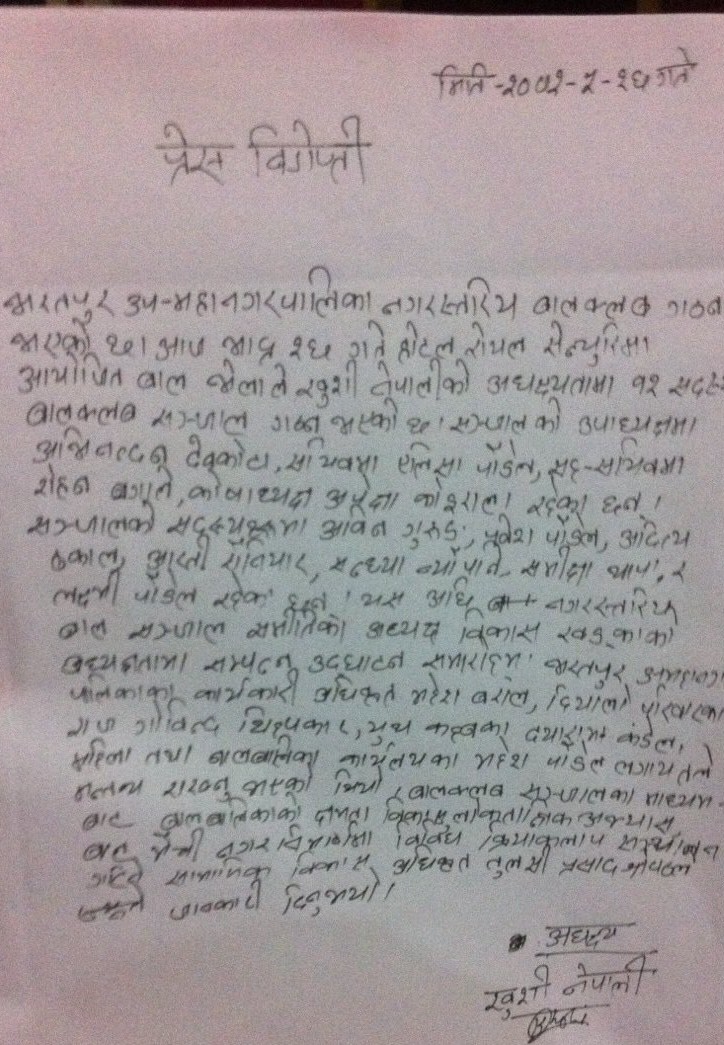 मिति -२०७१-५-२६ गते
प्रेस विगेप्ती
भरतपुर उप-महानगरपालिका नगरस्तरिय बालक्लब गठन
भएको छ। आज भाद्र २६ गते होटल रोयल सेन्चुरिमा
आयोजित बाल भेलाले खुशी नेपालीको अध्यक्ष्यतामा १२ सदस्य
बालक्लब सञ्जाल गठन भएको छ। सञ्जालको उपाध्यक्षमा
अभिनन्दन देवकोटा, सचिवमा एलिसा पौडेल, सह-सचिवमा
रोहन बगाले, कोषाध्यक्ष अपेक्षा कोइराला रहेका छन्।
सञ्जालको सदस्यहरूमा आवन गुरुङ, प्रवेश पौडेल, आदित्य
ढकाल, आरती सन्ध्या न्यौपाने समीक्षा थापा र
लक्ष्मी पौडेल रहेका छन्। यस अघि नगरस्तरिय
बाल सञ्जाल समितिको अध्यक्ष विकास खड्काको
अध्यक्षतामा सम्पन्न उद्घाटन समारोहमा भरतपुर
पालिकाका कार्यकारी अधिकृत महेश बराल, दियालो परिवारका
गोविन्द चित्रकार, युथ क्लबका दयाराम कंडेल,
महिला तथा बालबालिका कार्यलयका महेश पौडेल लगायतले
मन्तव्य राख्नु भएको थियो। बालक्लब सञ्जालका माध्यम-
बाट बालबालिकाको क्षमता विकास लोकतान्त्रिक अभ्यास
बाट मैत्री नगर निर्माणमा विविध क्रियाकलाप सञ्चालन
गरिने सामाजिक विकास अधिकृत तुलसी प्रसाद
जानकारी दिनुभयो।
अध्यक्ष्य
खुशी नेपाली